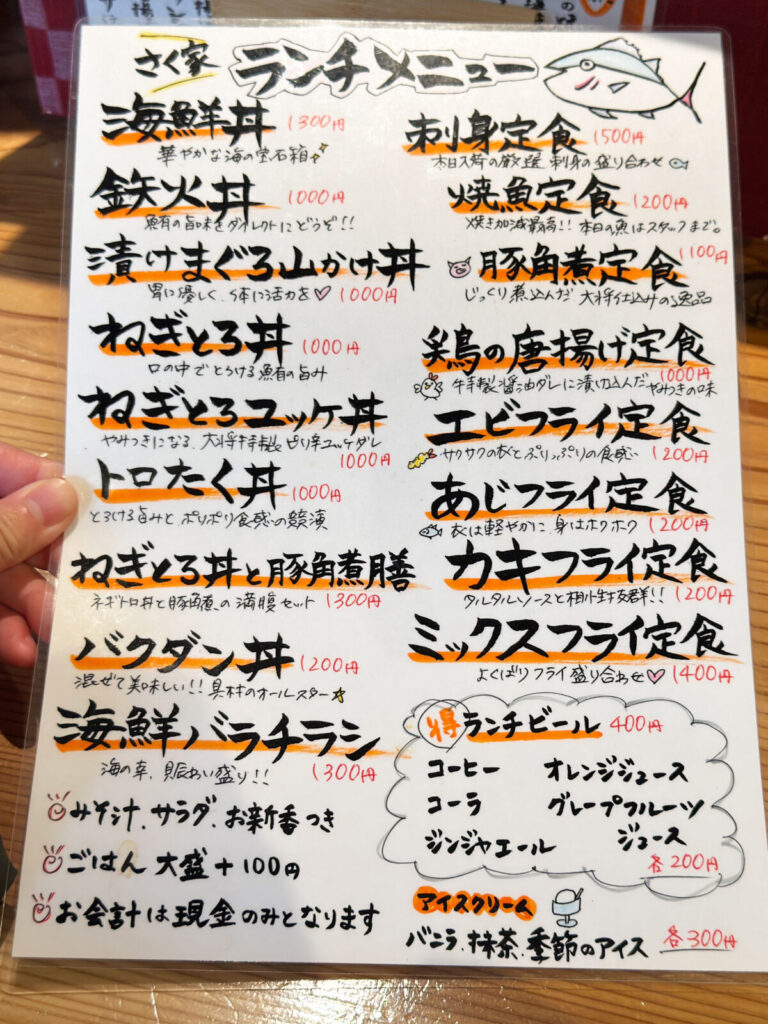 さく家
ランチメニュー
海鮮丼 1300円
華やかな海の宝石箱
鉄火丼 1000円
鮪の旨味をダイレクトにどうぞ!!
漬けまぐろ山かけ丼
胃に優しく、体に活力を♡ 1000円
ねぎとろ丼 1000円
口の中でとろける鮪の旨み
ねぎとろユッケ丼
やみつきになる、大将特製ピリ辛ユッケダレ
1000円
トロたく丼 1000円
とろける旨みとポリポリ食感の競演
ねぎとろ丼と豚角煮膳
ネギトロ丼と豚角煮の満腹セット 1300円
バクダン丼 1200円
混ぜて美味しい!!具材のオールスター
海鮮バラチラシ
海の幸、賑わい盛り!! 1300円
みそ汁、サラダ、お新香つき
ごはん大盛+100円
お会計は現金のみとなります
刺身定食 1500円
本日入荷の厳選刺身の盛り合わせ
焼魚定食 1200円
焼き加減最高!!本日の魚はスタッフまで。
豚角煮定食 1100円
じっくり煮込んだ大将仕込みの逸品
鶏の唐揚げ定食
1000円
特製醤油ダレに漬け込んだやみつきの味
エビフライ定食
サクサクの衣とぷりっぷりの食感 1200円
あじフライ定食
衣は軽やかに、身はホクホク 1200円
カキフライ定食
タルタルソースと相性抜群!! 1200円
ミックスフライ定食
よくばりフライ盛り合わせ♡ 1400円
得 ランチビール 400円
コーヒー オレンジジュース
コーラ グレープフルーツ
ジンジャエール ジュース
各200円
アイスクリーム
バニラ、抹茶、季節のアイス 各300円